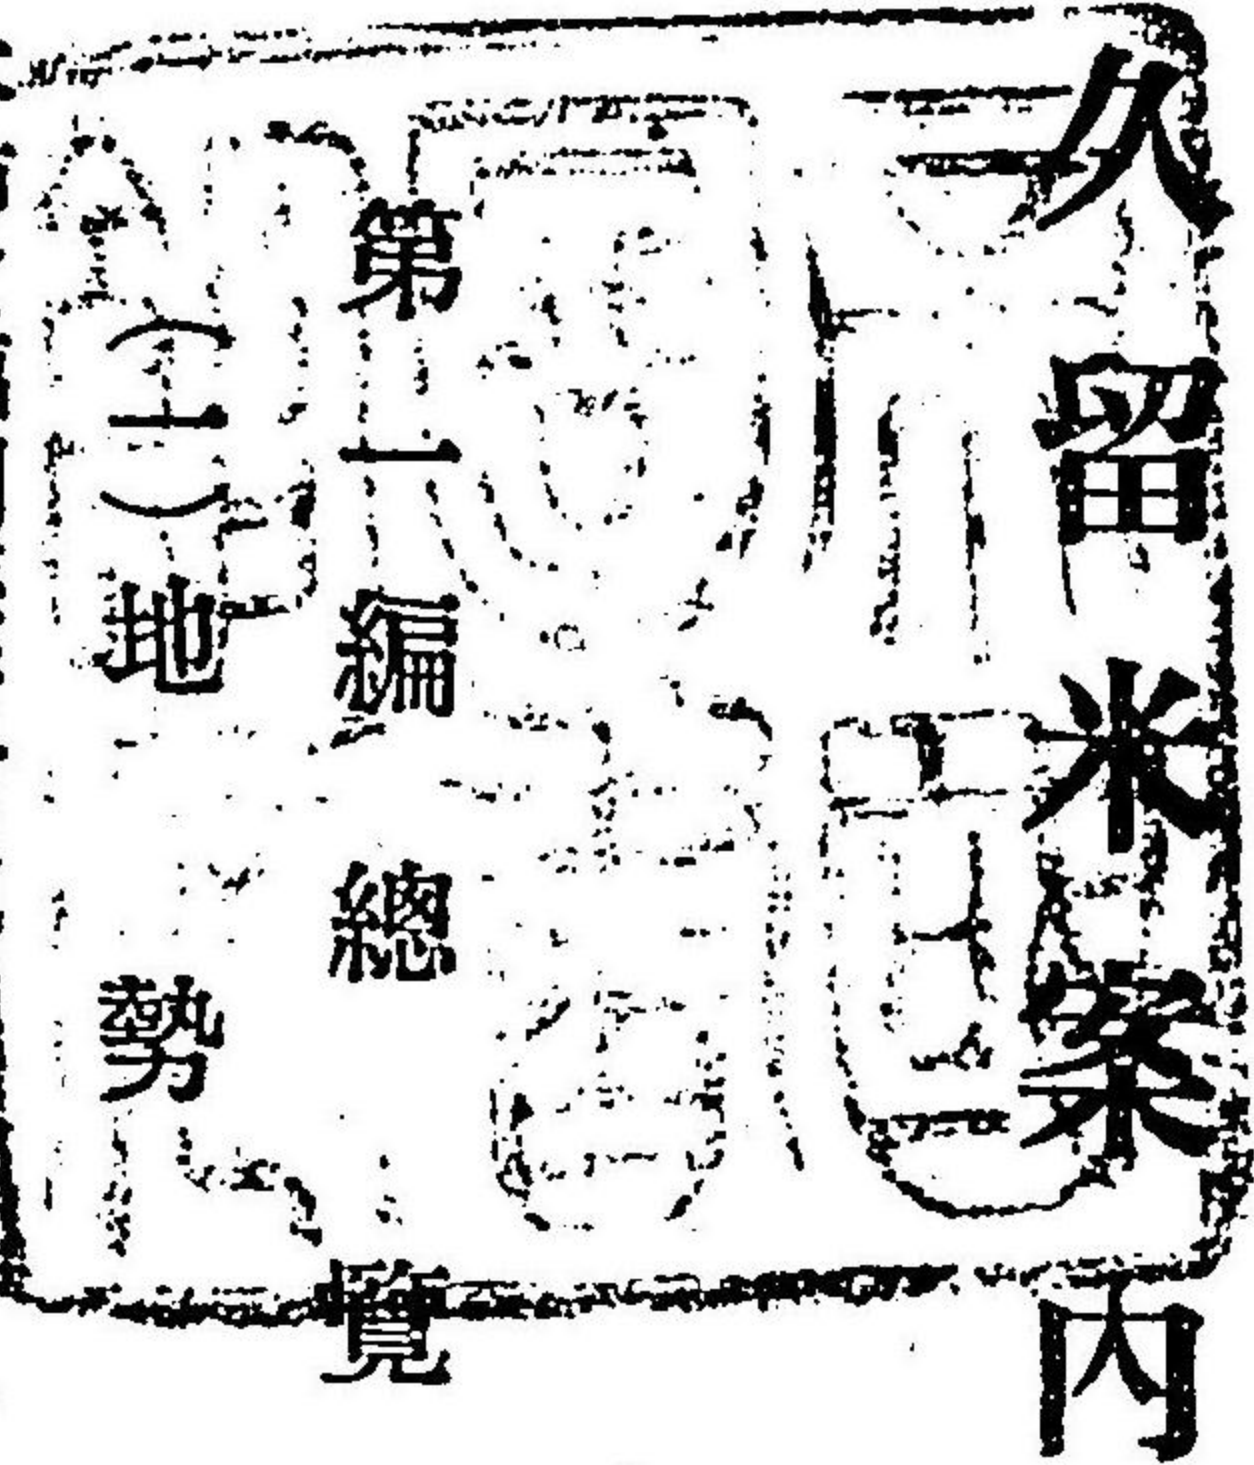 久留米案内
第一編 總覽
(一) 地勢